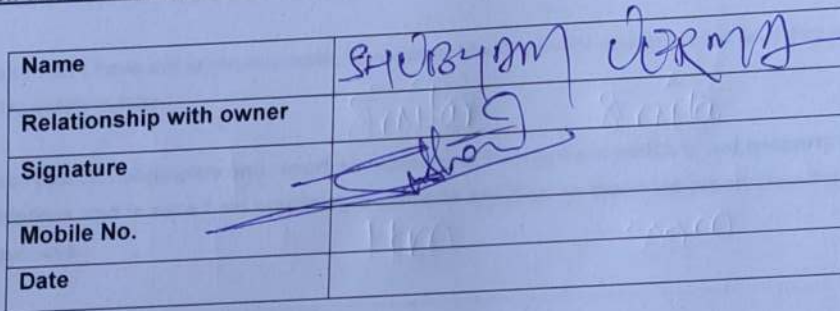 Name SHUBHAM VERMA
Relationship with owner
Signature
Mobile No.
Date